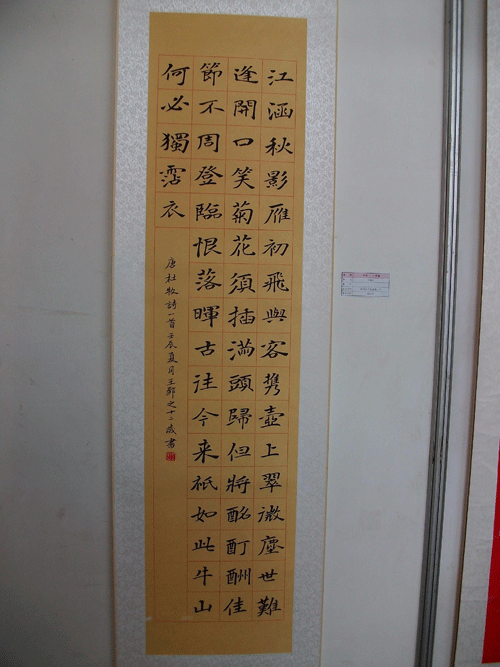 江涵秋影雁初飛與客攜壺上翠微塵世難
逢開口笑菊花須插滿頭歸但將酩酊酬佳
節不周登臨恨落暉古往今来祇如此牛山
何必獨霑衣
唐杜牧詩一首壬辰夏月王之十二歲書